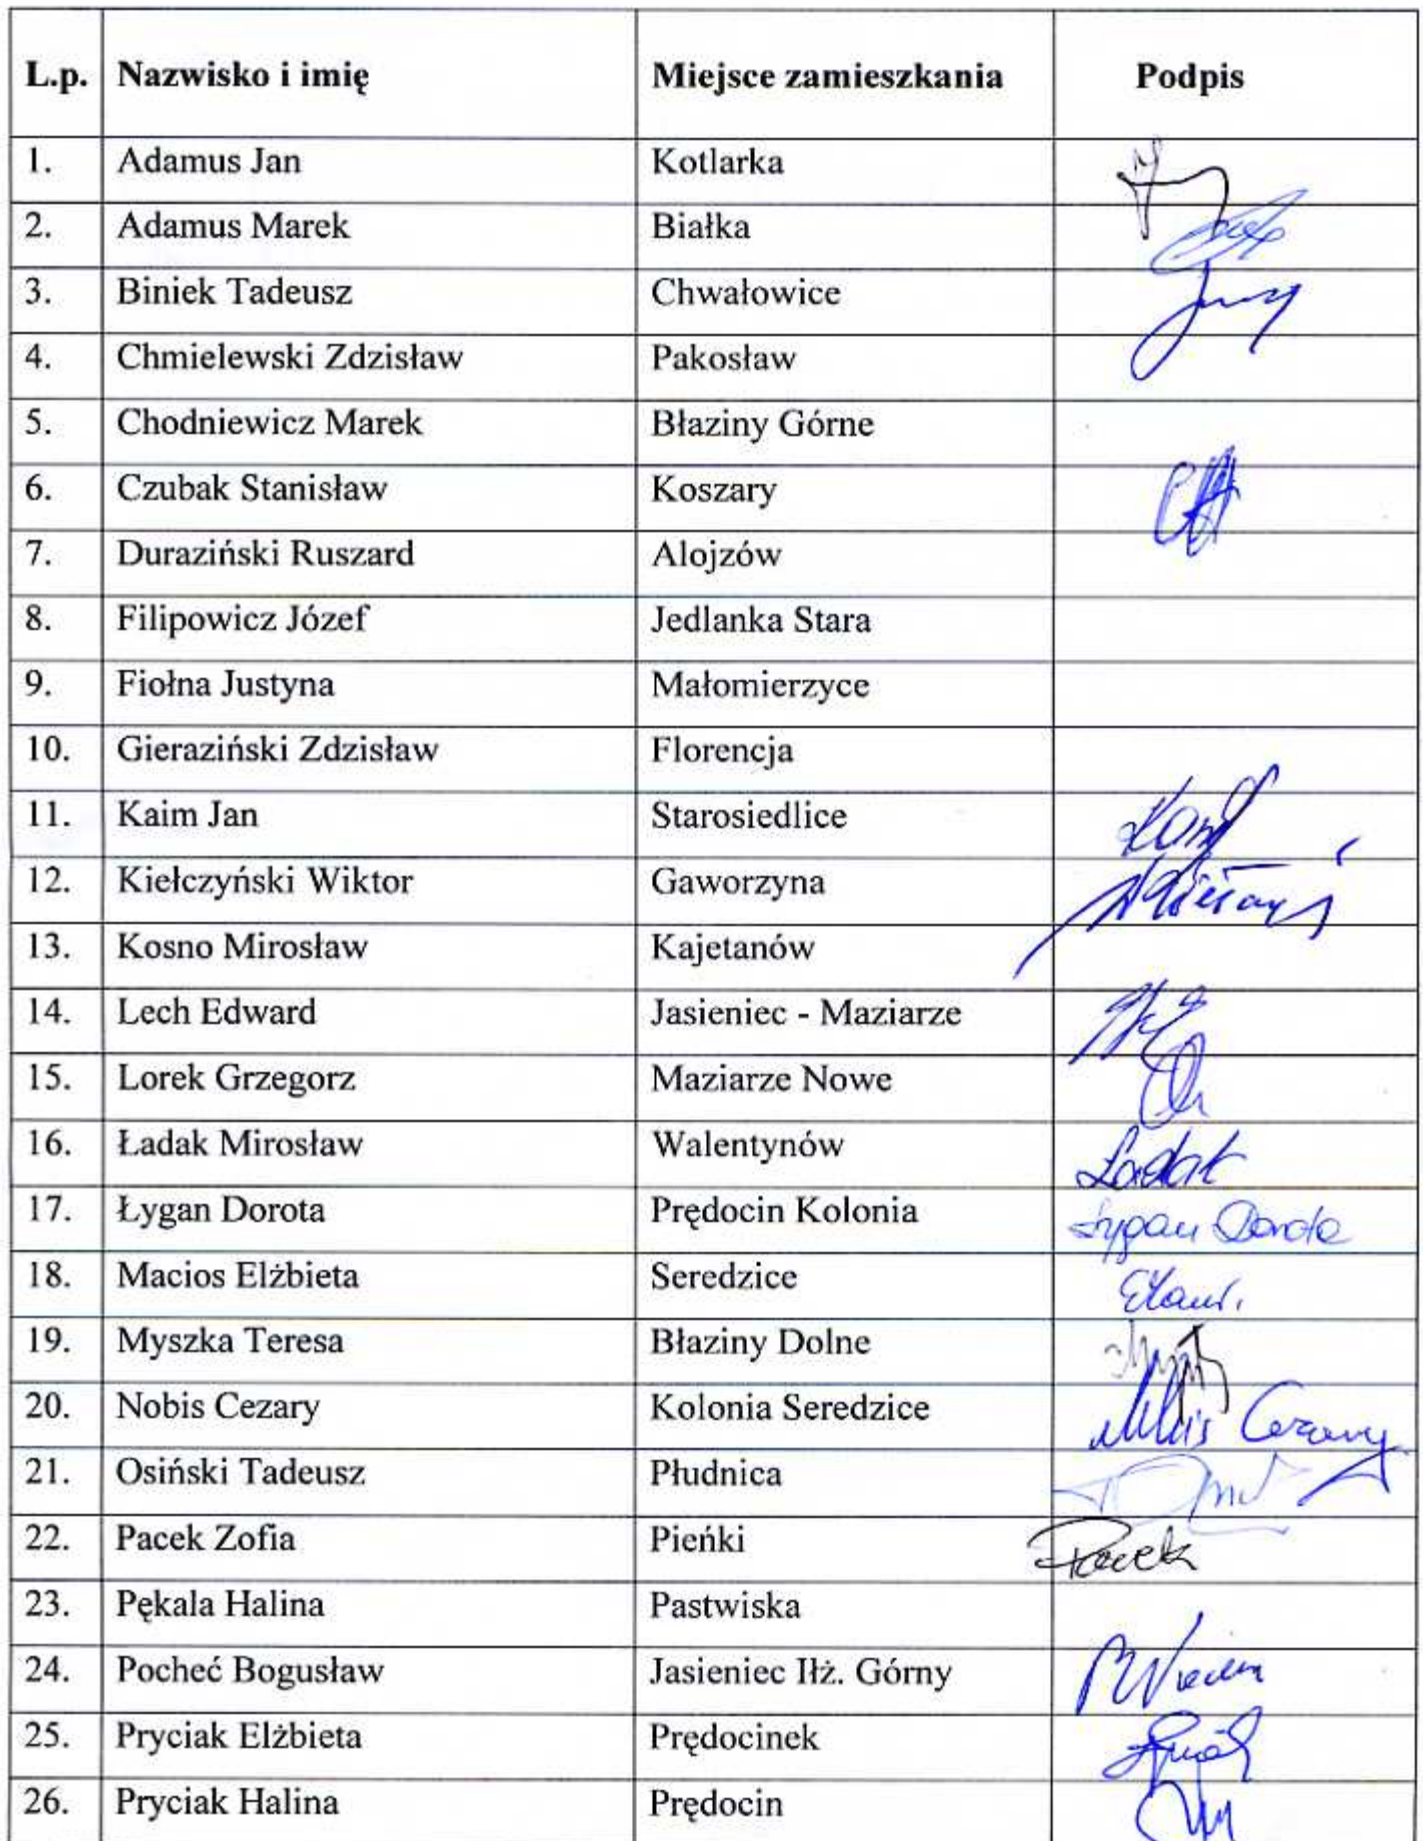 L.p. Nazwisko i imię Miejsce zamieszkania Podpis
1. Adamus Jan Kotlarka
2. Adamus Marek Białka
3. Biniek Tadeusz Chwałowice
4. Chmielewski Zdzisław Pakosław
5. Chodniewicz Marek Błaziny Górne
6. Czubak Stanisław Koszary
7. Duraziński Ruszard Alojzów
8. Filipowicz Józef Jedlanka Stara
9. Fiołna Justyna Małomierzyce
10. Gieraziński Zdzisław Florencja
11. Kaim Jan Starosiedlice
12. Kiełczyński Wiktor Gaworzyna
13. Kosno Mirosław Kajetanów
14. Lech Edward Jasieniec - Maziarze
15. Lorek Grzegorz Maziarze Nowe
16. Ładak Mirosław Walentynów Ładak
17. Łygan Dorota Prędocin Kolonia Łygan Dorota
18. Macios Elżbieta Seredzice
19. Myszka Teresa Błaziny Dolne
20. Nobis Cezary Kolonia Seredzice Nobis Cezary
21. Osiński Tadeusz Płudnica
22. Pacek Zofia Pieńki Pacek
23. Pękala Halina Pastwiska
24. Pocheć Bogusław Jasieniec Iłż. Górny
25. Pryciak Elżbieta Prędocinek
26. Pryciak Halina Prędocin